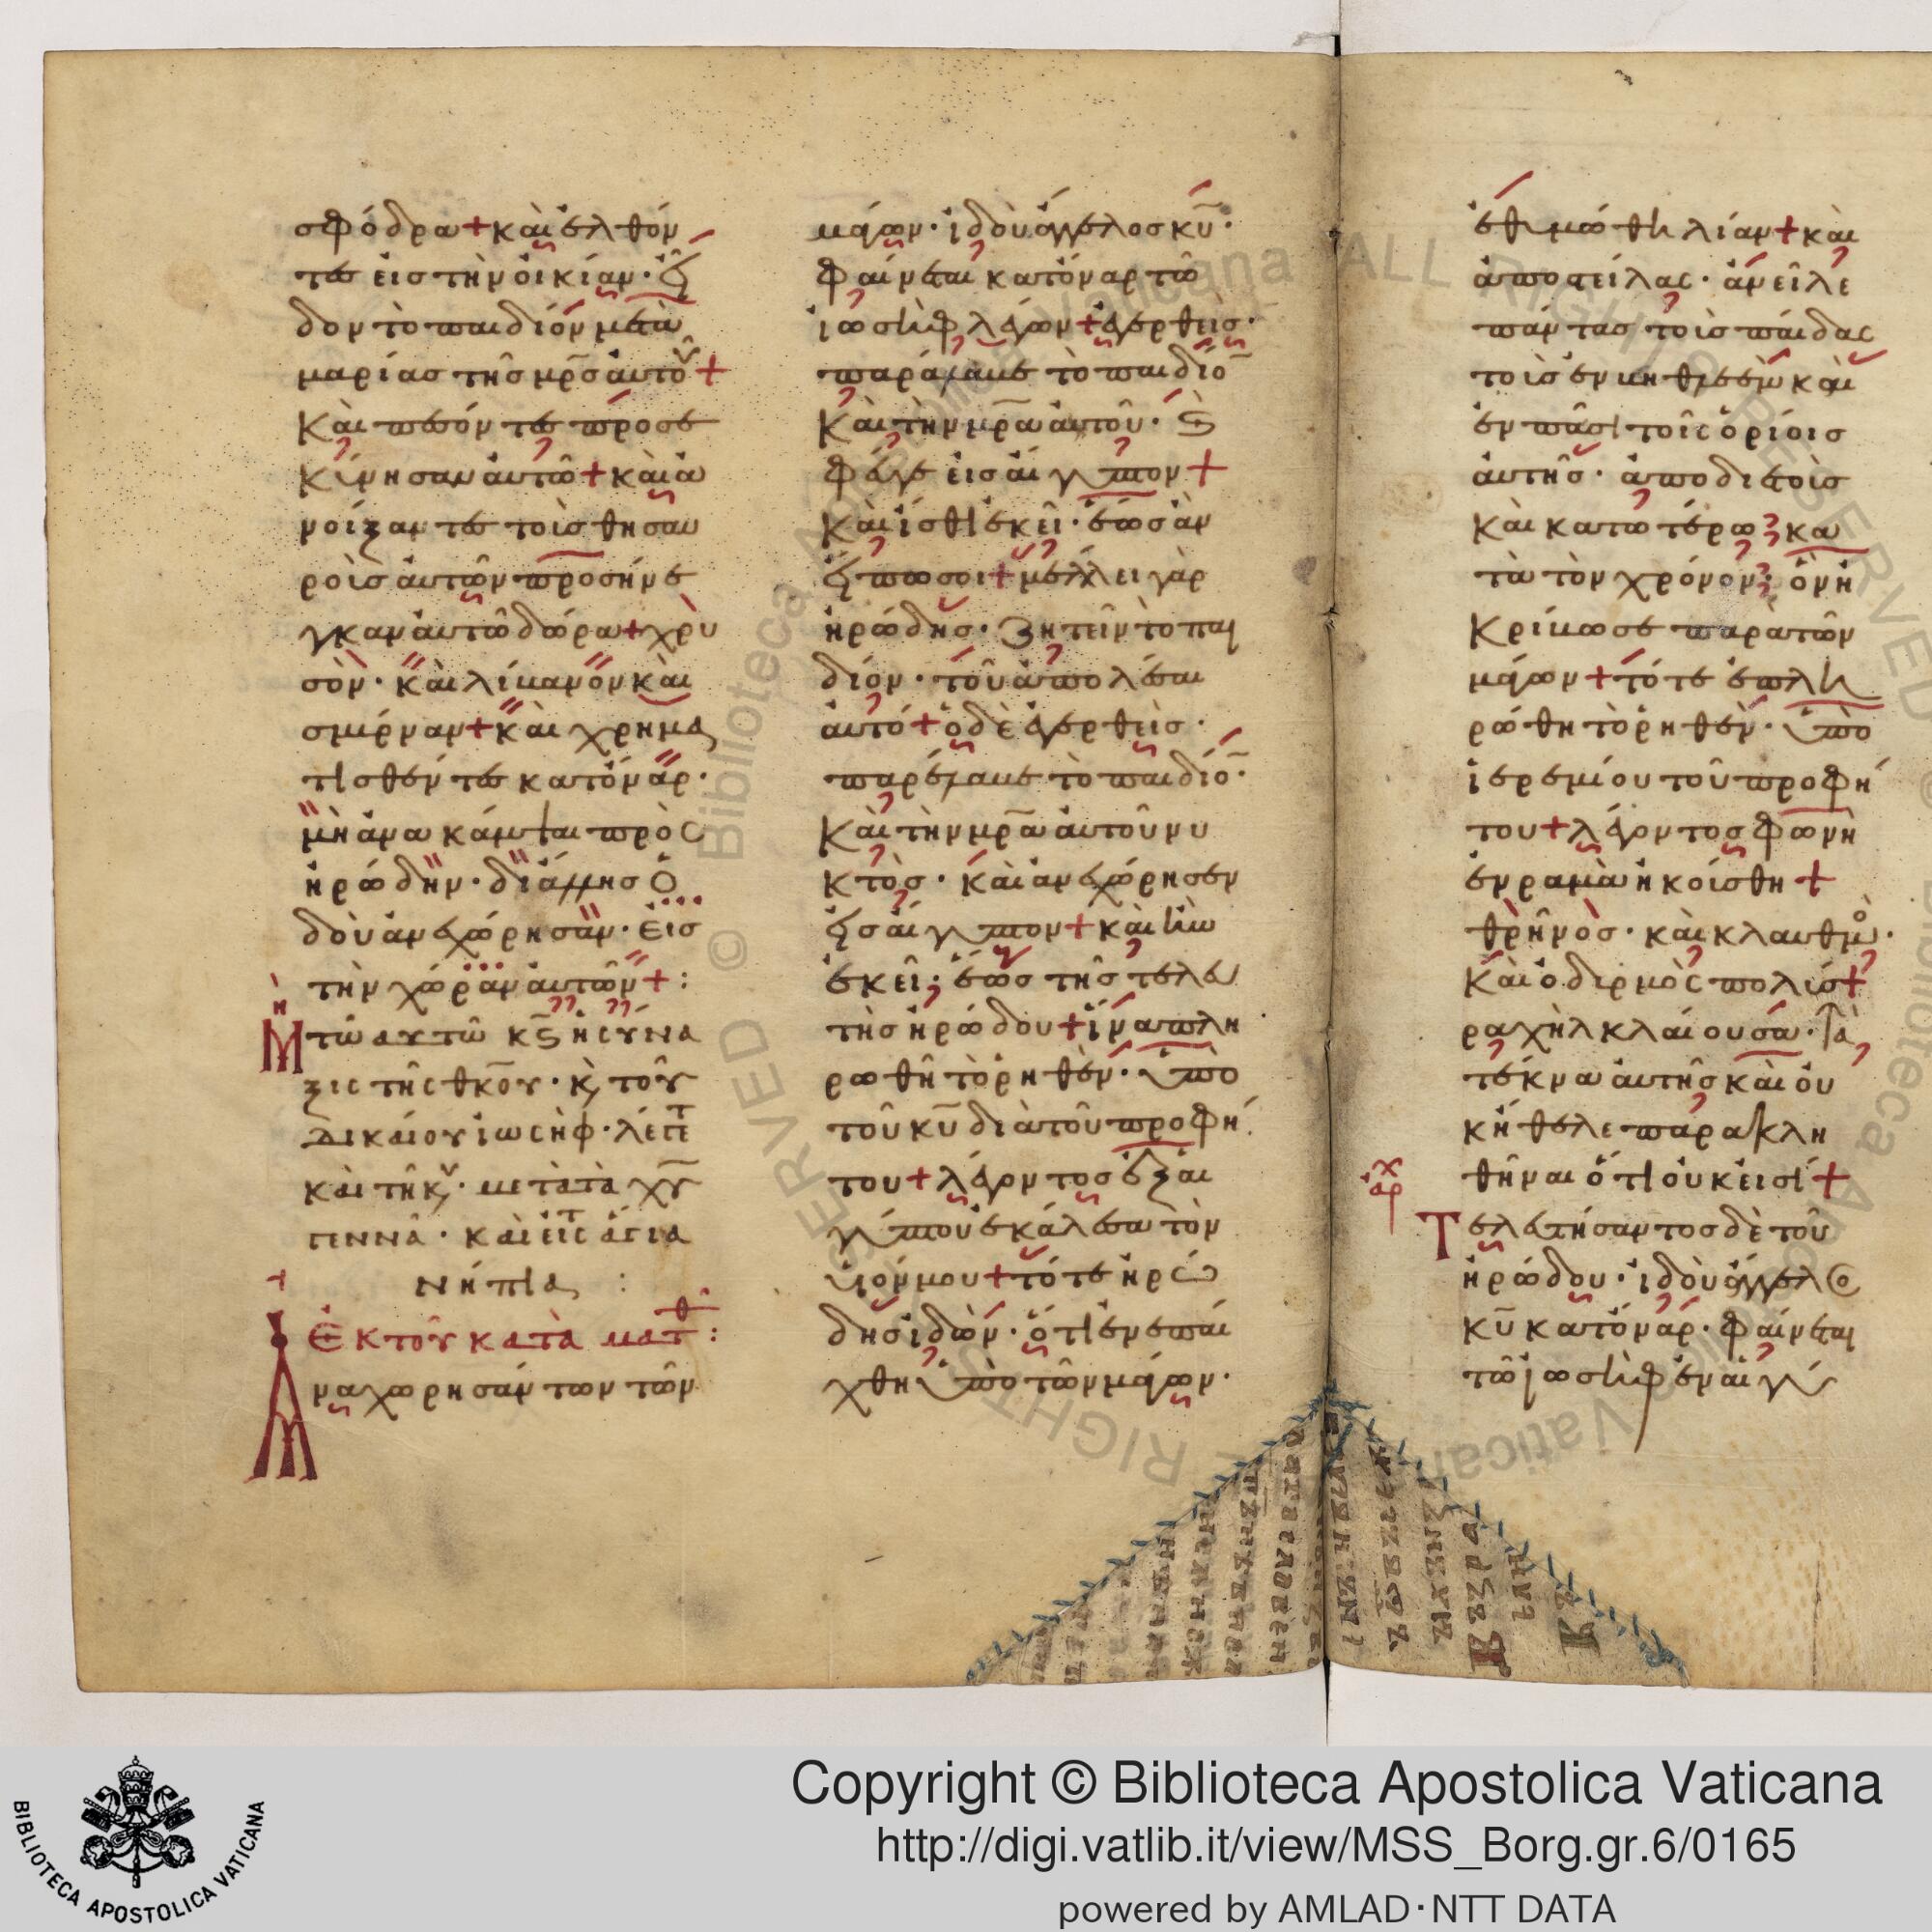 σφόδρα + καὶ ἐλθόν
τες εἰς τὴν οἰκίαν · εἶ
δον τὸ παιδίον μετὰ
μαρίας τῆς μρ̅ς αὐτοῦ +
Καὶ πεσόντες προσε
κύνησαν αὐτῶ + καὶ ἀ
νοίξαντες τοὺς θησαυ
ροὺς αὐτῶν προσήνε
γκαν αὐτῶ δῶρα + χρυ
σὸν · καὶ λίβανον καὶ
σμύρναν + καὶ χρημα
τισθέντες κατ' ὄναρ ·
μὴ ἀνακάμψαι πρὸς
ἡρώδην · δι' ἄλλης ὁ
δοῦ ἀνεχώρησαν · εἰς
τὴν χώραν αὐτῶν + :
Μη
τῶ αυτῶ κς̅ ἡ σύνα
ξις τῆς θκ̅ου · κ, τοῦ
δικαίου ἰωσὴφ · λέγετ
καὶ τῆ κ, · μετὰ τὰ χυ̅
γεννᾶ · καὶ εἰς τ ἅγια
νήπια :
Ἐκ τοῦ κατὰ ματθ :
Ἀναχωρησάντων τῶν
μάγων · ἰδοὺ ἄγγελος κυ̅ ·
φαίνεται κατ' ὄναρ τῶ
ἰωσὴφ λέγων + ἐγερθεὶς ·
παράλαβε τὸ παιδίο̅
Καὶ τὴν μρ̅α αὐτοῦ · ϛ
φεῦγε εἰς αἴγυπτον +
Καὶ ἴσθι ἐκεῖ · ἕως ἂν
εἴπω σοι + μέλλει γὰρ
ἡρώδης · ζητεῖν τὸ παι
δίον · τοῦ ἀπολέσαι
αὐτό + ὁ δὲ ἐγερθεὶς ·
παρέλαβε τὸ παιδίο̅ ·
Καὶ τὴν μρ̅α αὐτοῦ νυ
κτὸς · καὶ ἀνεχώρησεν
εἰς αἴγυπτον + καὶ ἦν
ἐκεῖ · ἕως τῆς τελευ
τῆς ἡρώδου + ἵνα πλη
ρωθῆ τὸ ῥηθὲν · ὑπὸ
τοῦ κυ̅ διὰ τοῦ προφή
του + λέγοντος ἐξ αἰ
γύπτου ἐκάλεσα τὸν
υἱόν μου + τότε ἡρώ
δης ἰδὼν · ὅτι ἐνεπαί
χθη ὑπὸ τῶν μάγων ·
ἐθυμώθη λίαν + καὶ
ἀποστείλας · ἀνεῖλε
πάντας τοὺς παῖδας
τοὺς ἐν βηθλεὲμ καὶ
ἐν πᾶσι τοῖς ὁρίοις
αὐτῆς · ἀπὸ διετοῦς
καὶ κατωτέρω · κα
τὰ τὸν χρόνον · ὃν ἠ
κρίβωσε παρὰ τῶν
μάγων + τότε ἐπλη
ρώθη τὸ ῥηθὲν · ὑπὸ
ἱερεμίου τοῦ προφή
του + λέγοντος φωνὴ
ἐν ραμᾶ ἠκούσθη +
θρῆνος · καὶ κλαυθμὸ ·
Καὶ ὀδυρμὸς πολύς +
ραχὴλ κλαίουσα · τὰ
τέκνα αὐτῆς καὶ οὐ
κ ἤθελε παρακλη
θῆναι ὅτι οὐκ εἰσί +
ἀρχ
Τελευτήσαντος δὲ τοῦ
ἡρώδου · ἰδοὺ ἄγγελος
κυ̅ κατ' ὄναρ · φαίνεται
τῶ ἰωσὴφ ἐν αἰγύ
BIBLIOTECA APOSTOLICA VATICANA
Copyright © Biblioteca Apostolica Vaticana
http://digi.vatlib.it/view/MSS_Borg.gr.6/0165
powered by AMLAD·NTT DATA